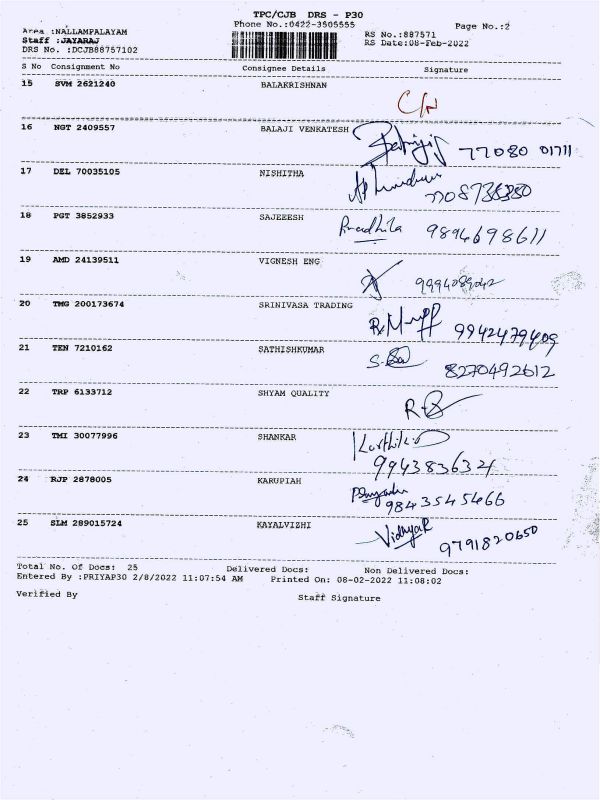 TPC/CJB DRS - P30
Phone No.:0422-3505555
Page No.:2
Area :NALLAMPALAYAM
Staff :JAYARAJ
DRS No. :DCJB88757102
RS No.:887571
RS Date:08-Feb-2022
S No Consignment No Consignee Details Signature
15 SVM 2621240 BALAKRISHNAN
C/N
16 NGT 2409557 BALAJI VENKATESH
77080 01711
17 DEL 70035105 NISHITHA
7708738380
18 PGT 3852933 SAJEEESH
9894698611
19 AMD 24139511 VIGNESH ENG
9994089042
20 TMG 200173674 SRINIVASA TRADING
9942479409
21 TEN 7210162 SATHISHKUMAR
8270492612
22 TRP 6133712 SHYAM QUALITY
23 TMI 30077996 SHANKAR
Karthik
9943836321
24 RJP 2878005 KARUPIAH
9843545466
25 SLM 289015724 KAYALVIZHI
Vidhya R
9791820650
Total No. Of Docs: 25 Delivered Docs: Non Delivered Docs:
Entered By :PRIYAP30 2/8/2022 11:07:54 AM Printed On: 08-02-2022 11:08:02
Verified By Staff Signature